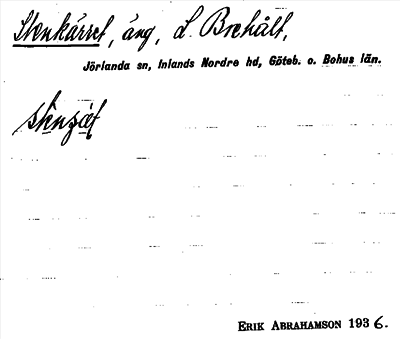 Stenkärret, äng, L. Brehält,
Jörlanda sn, Inlands Nordre hd, Göteb. o. Bohus län.
ERIK ABRAHAMSON 1936.